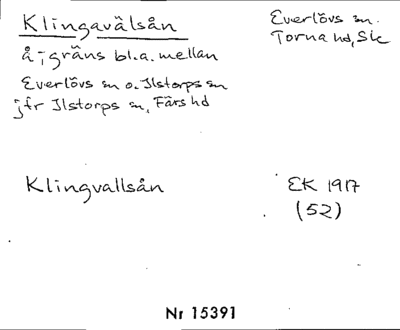 Klingavälsån
Everlövs sn.
Torna hd, Sk
å; gräns bl.a. mellan
Everlövs sn o. Ilstorps sn
jfr Ilstorps sn, Färs hd
Klingvallsån
EK 1917
(52)
Nr 15391